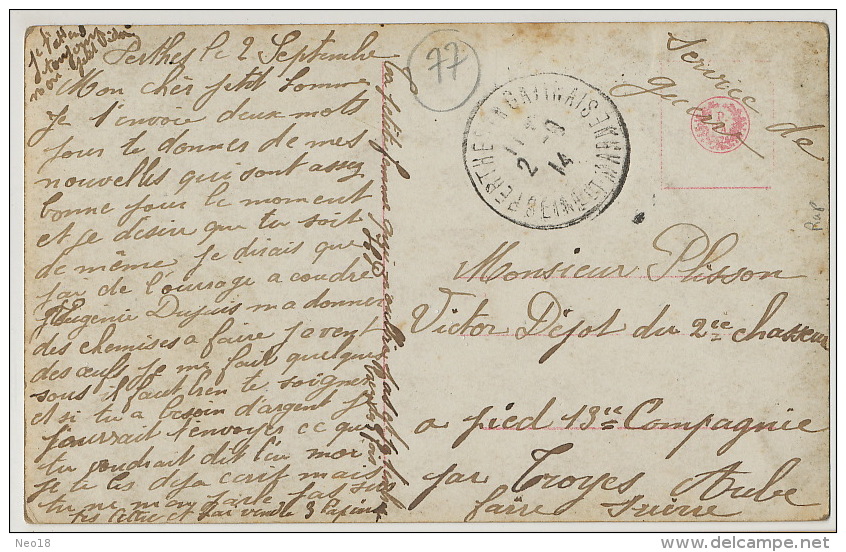 Je t'attend
toujours
mon petit Victor
Perthes le 2 Septembre
Mon chér petit homme
Je t'envoie deux mots
pour te donner de mes
nouvelles qui sont assez
bonne pour le moment
et je désire que tu soit
de même je dirais que
j'ai de l'ouvrage a coudre
Eugenie Dupuis m a donner
des chemises a faire j avent
des œufs je me fait quelques
sous il faut bien te soigner
et si tu a besoin d'argent je
pourrait t'envoyer ce que
tu voudrait dit l'eu moi
je te l'es déja ecrit mais
tu ne m en parle pas sur
tes lettre et j'ai vendu 3 lapins
Ta petite femme qui n oublie pas
77
PERTHES-EN-GATINAIS SEINE-ET-MARNE
2 -9
14
Service de
guerre
R F
Monsieur Plisson
Victor Dépot du 2ee chasseur
a pied 13ee Compagnie
par Troyes Aube
faire suivre
Neo18
www.delcampe.net